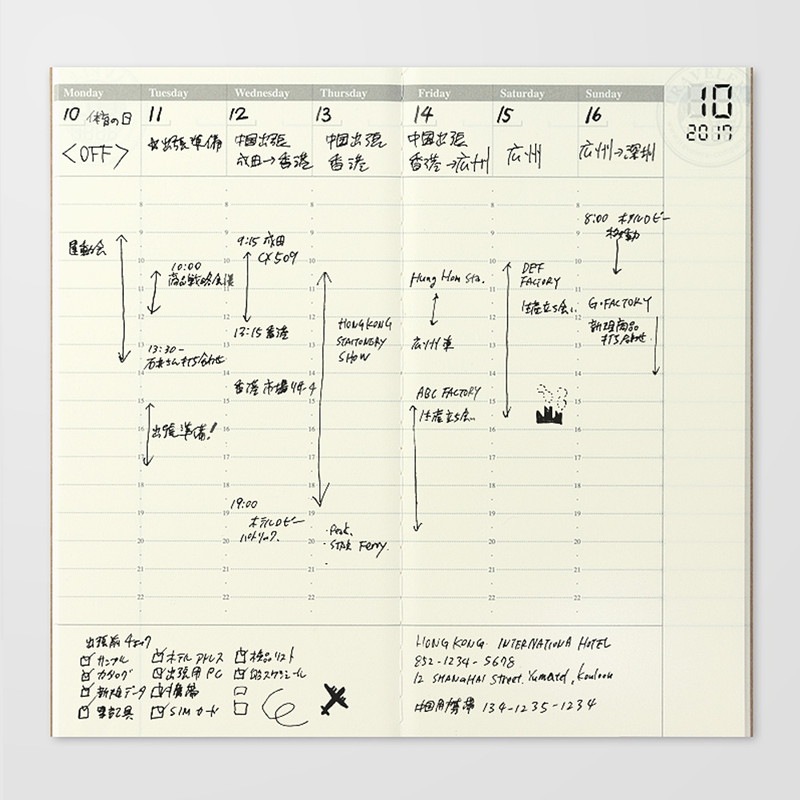 Monday
Tuesday
Wednesday
Thursday
Friday
Saturday
Sunday
10
2017
10 体育の日
11
12
13
14
15
16
<OFF>
出張準備
中国出張
成田→香港
中国出張
香港
中国出張
香港→広州
広州
広州→深圳
運動会
10:00
商品戦略会議
13:30-
打ち合わせ
出張準備!
9:15 成田
CX509
13:15 香港
香港市場リサーチ
19:00
ホテルロビー
HONGKONG
STATIONERY
SHOW
・Peak.
・STAR Ferry.
Hung Hom Sta.
広州東
ABC FACTORY
生産立ち会い
DEF
FACTORY
生産立ち会い
8:00 ホテルロビー
移動
G・FACTORY
新規商品
打ち合わせ
8
9
10
11
12
13
14
15
16
17
18
19
20
21
22
出張前チェック
サンプル
カタログ
新規データ
筆記具
ホテルアドレス
出張用PC
携帯
SIMカード
検品リスト
スケジュール
HONG KONG INTERNATIONA HOTEL
852-1234-5678
12 SHANGHAI Street. Yumatei, Kouloon
中国用携帯 134-1235-1234